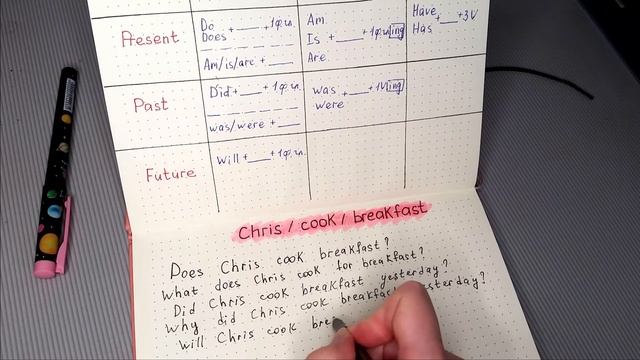 Present
Do
Does + ___ + 1ф.гл.
Am/is/are + ___
Am
Is + ___ + 1ф.гл ing
Are
Have
Has + __ + 3V
Past
Did + ___ + 1ф.гл.
was/were + ___
was + ___ + 1V ing
were
Future
Will + ___ + 1ф.гл.
Chris / cook / breakfast
Does Chris cook breakfast?
What does Chris cook for breakfast?
Did Chris cook breakfast yesterday?
Why did Chris cook breakfast yesterday?
Will Chris cook bre